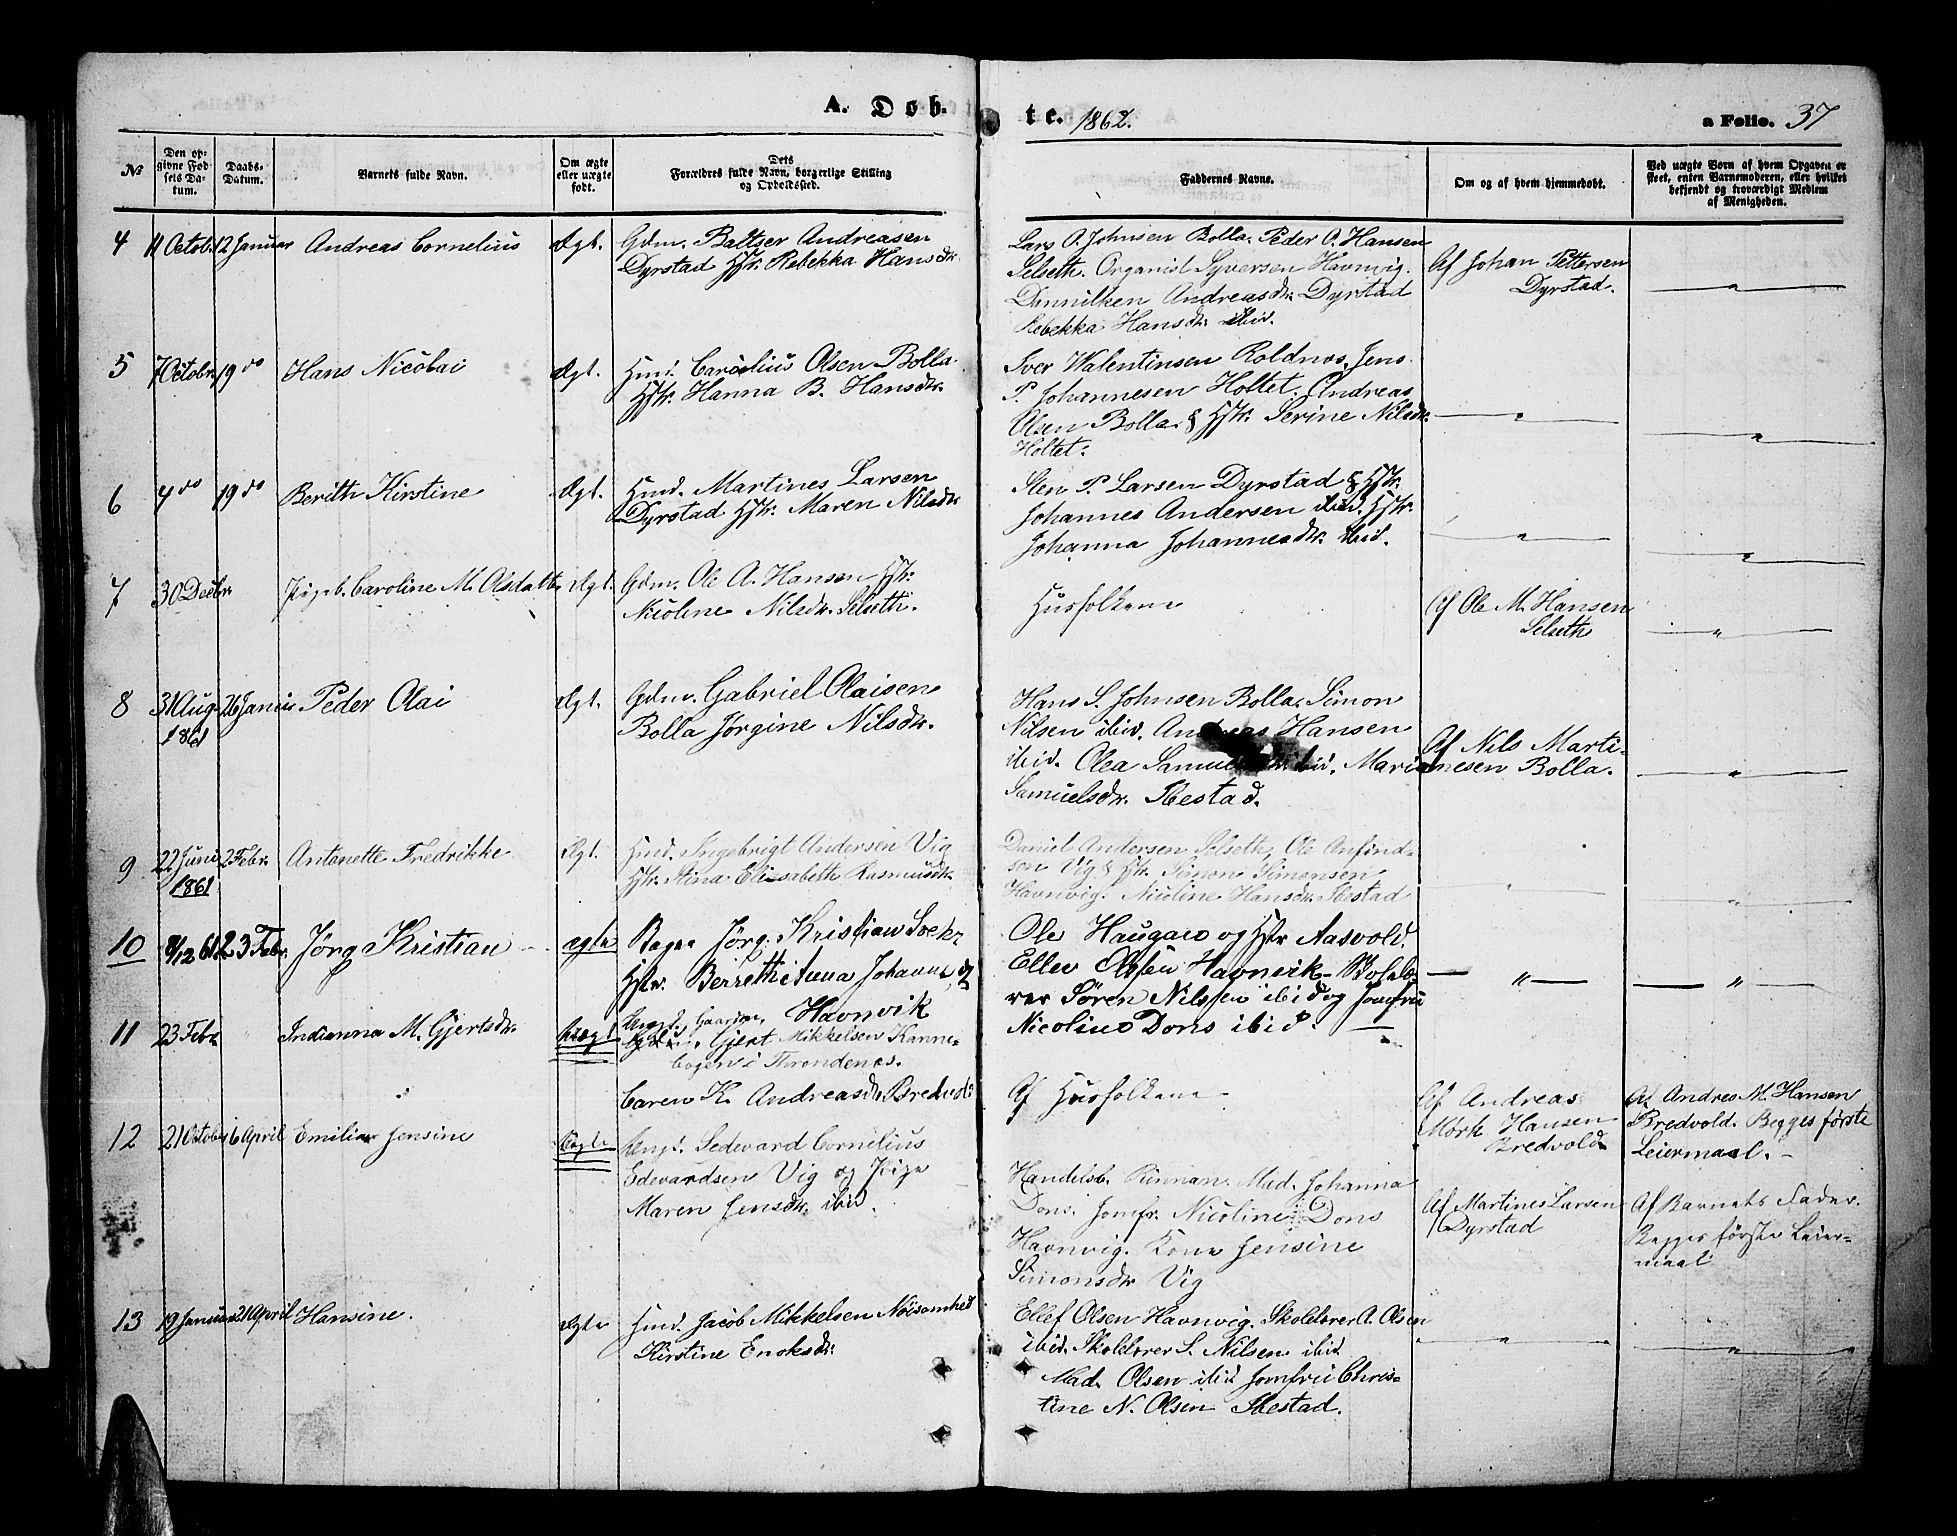 A. Døb- te. 1862. a Folio. 37
№
Den op-
givne Fød-
sels Da-
tum.
Daabs-
Datum.
Barnets fulde Navn.
Om ægte
eller uægte
født.
Dets
Forældres fulde Navn, borgerlige Stilling
og Opholdssted.
Faddernes Navne.
Om og af hvem hjemmedøbt.
Ved uægte Børn af hvem Opgaven er
skeet, enten Barnemoderen, eller hvilket
bekjendt og troværdigt Medlem
af Menigheden.
4 11 Octob. 12 Januar Andreas Cornelius Ægt.
Gdm. Baltser Andreasen
Dyrstad Hstr. Rebekka Hansdr.
Lars O. Johnsen Bolla. Peder O. Hansen
Selseth. Organist Syversen Havnvig.
Andreasdr. Dyrstad
Rebekka Hansdr. ibid.
Af Johan Pettersen
Dyrstad.
5 7 Octobr. 19 do Hans Nicolai Ægt.
Hmd. Carolius Olsen Bolla.
Hstr. Hanna B. Hansdr.
Iver Walentinsen Roldnæs, Jens
P. Johannesen Holtet. Andreas
Olsen Bolla. & Hstr. Serine Nilsdr.
Holtet.
6 4 do 19 do Berith Kirstine Ægt.
Hmd. Martines Larsen
Dyrstad Hstr. Maren Nilsdr.
Sten P. Larsen Dyrstad & Hstr.
Johannes Andersen ibid. Hstr.
Johanna Johannesdr. ibid.
7 30 Decbr. Caroline M. Olsdatter Ægt.
Gdm. Ole A. Hansen Hstr.
Nicoline Nilsdr. Selseth.
Husfolkene
Af Ole M. Hansen
Selseth
8 31 Aug. 26 Januar Peder Olai Ægt.
1861
Gdm. Gabriel Olaisen
Bolla Jørgine Nilsdr.
Hans S. Johnsen Bolla. Simon
Nilsen ibid. Andreas Hansen
ibid. Olea ibid. Mariane
Samuelsdr. Ibestad.
Af Nils Marti-
nesen Bolla.
9 22 Juni 2 Febr. Antonette Fredrikke Ægt.
1861
Hmd. Ingebrigt Andersen Vig
Hstr. Stina Elisabeth Rasmusdr.
Daniel Andersen Selseth, Ole Anfind-
sen Vig & Hstr. Simon Simonsen
Havnvig. Nicoline Hansdr. Ibestad
10 8/12 61. 23 Febr. Jørg Kristian ægte
Jørg. Kristian
Hstr. Johannesdt
Havnvik
Ole Haugan og Hstr Aasvold.
Ellev Olssen Havnvik - Skolelæ-
rer Søren Nilssen ibid og Jomfru
Nicoline Dons ibid.
11 23 Febr. Indianna M. Gjertsdr. Uægt
Gjert Mikkelsen Kanne-
bogen i Throndenæs.
Caren K. Andreasdr. Bredvold
Af Husfolkene
Af Andreas
Mørk Hansen
Bredvold
Af Andres M. Hansen
Bredvold. Begges første
Leiermaal.
12 21 Octobr. 6 April Emilie Jensine Uægte
Ungk. Sedevard Cornelius
Edevardsen Vig og Pige
Maren Jensdr. ibid.
Handelsb. Rinnan. Mad. Johanna
Dons. Jomfr. Nicoline Dons
Havnvig. Kone Jensine
Simonsdr. Vig
Af Martines Larsen
Dyrstad
Af Barnets Fader.
Begges første Leier-
maal
13 19 Januar 21 April Hansine. Ægte
Hmd. Jacob Mikkelsen Nøisomhed
Kirstine Enoksdr.
Ellef Olsen Havnvig. Skolelærer A. Olsen
ibid. Skolelærer S. Nilsen ibid
Mad. Olsen ibid Jomfru Chris-
tine N. Olsen Ibestad.